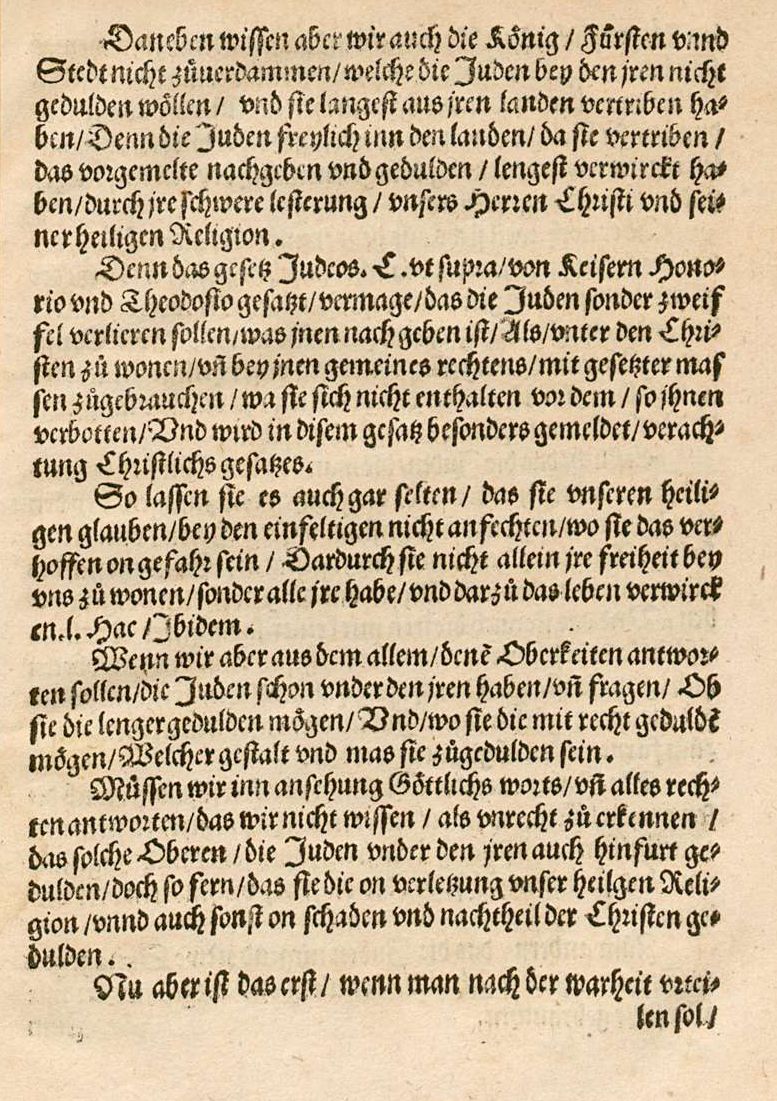 Daneben wissen aber wir auch die König / Fürsten vnnd
Stedt nicht zůuerdammen / welche die Juden bey den jren nicht
gedulden wöllen / vnd sie langest aus jren landen vertriben ha⸗
ben / Denn die Juden freylich inn den landen / da sie vertriben /
das vorgemelte nachgeben vnd gedulden / lengest verwirckt ha⸗
ben / durch jre schwere lesterung / vnsers Herren Christi vnd sei⸗
ner heiligen Religion.
Denn das gesetz Judeos. C. vt supra / von Keisern Hono⸗
rio vnd Theodosio gesatzt / vermage / das die Juden sonder zweif
fel verlieren sollen / was jnen nach geben ist / Als / vnter den Chri⸗
sten zů wonen / vñ bey jnen gemeines rechtens / mit gesetzter mas
sen zůgebrauchen / wa sie sich nicht enthalten vor dem / so jhnen
verbotten / Vnd wird in disem gesatz besonders gemeldet / verach⸗
tung Christlichs gesatzes.
So lassen sie es auch gar selten / das sie vnseren heili⸗
gen glauben / bey den einfeltigen nicht anfechten / wo sie das ver⸗
hoffen on gefahr sein / Dardurch sie nicht allein jre freiheit bey
vns zů wonen / sonder alle jre habe / vnd darzů das leben verwirck
en. l. Hac / Jbidem.
Wenn wir aber aus dem allem / denẽ Oberkeiten antwor⸗
ten sollen / die Juden schon vnder den jren haben / vñ fragen / Ob
sie die lenger gedulden mögen / Vnd / wo sie die mit recht geduldẽ
mögen / Welcher gestalt vnd mas sie zůgedulden sein.
Müssen wir inn ansehung Göttlichs worts / vñ alles rech⸗
ten antworten / das wir nicht wissen / als vnrecht zů erkennen /
das solche Oberen / die Juden vnder den jren auch hinfurt ge⸗
dulden / doch so fern / das sie die on verletzung vnser heilgen Reli⸗
gion / vnnd auch sonst on schaden vnd nachtheil der Christen ge⸗
dulden.
Nu aber ist das erst / wenn man nach der warheit vrtei⸗
len sol /